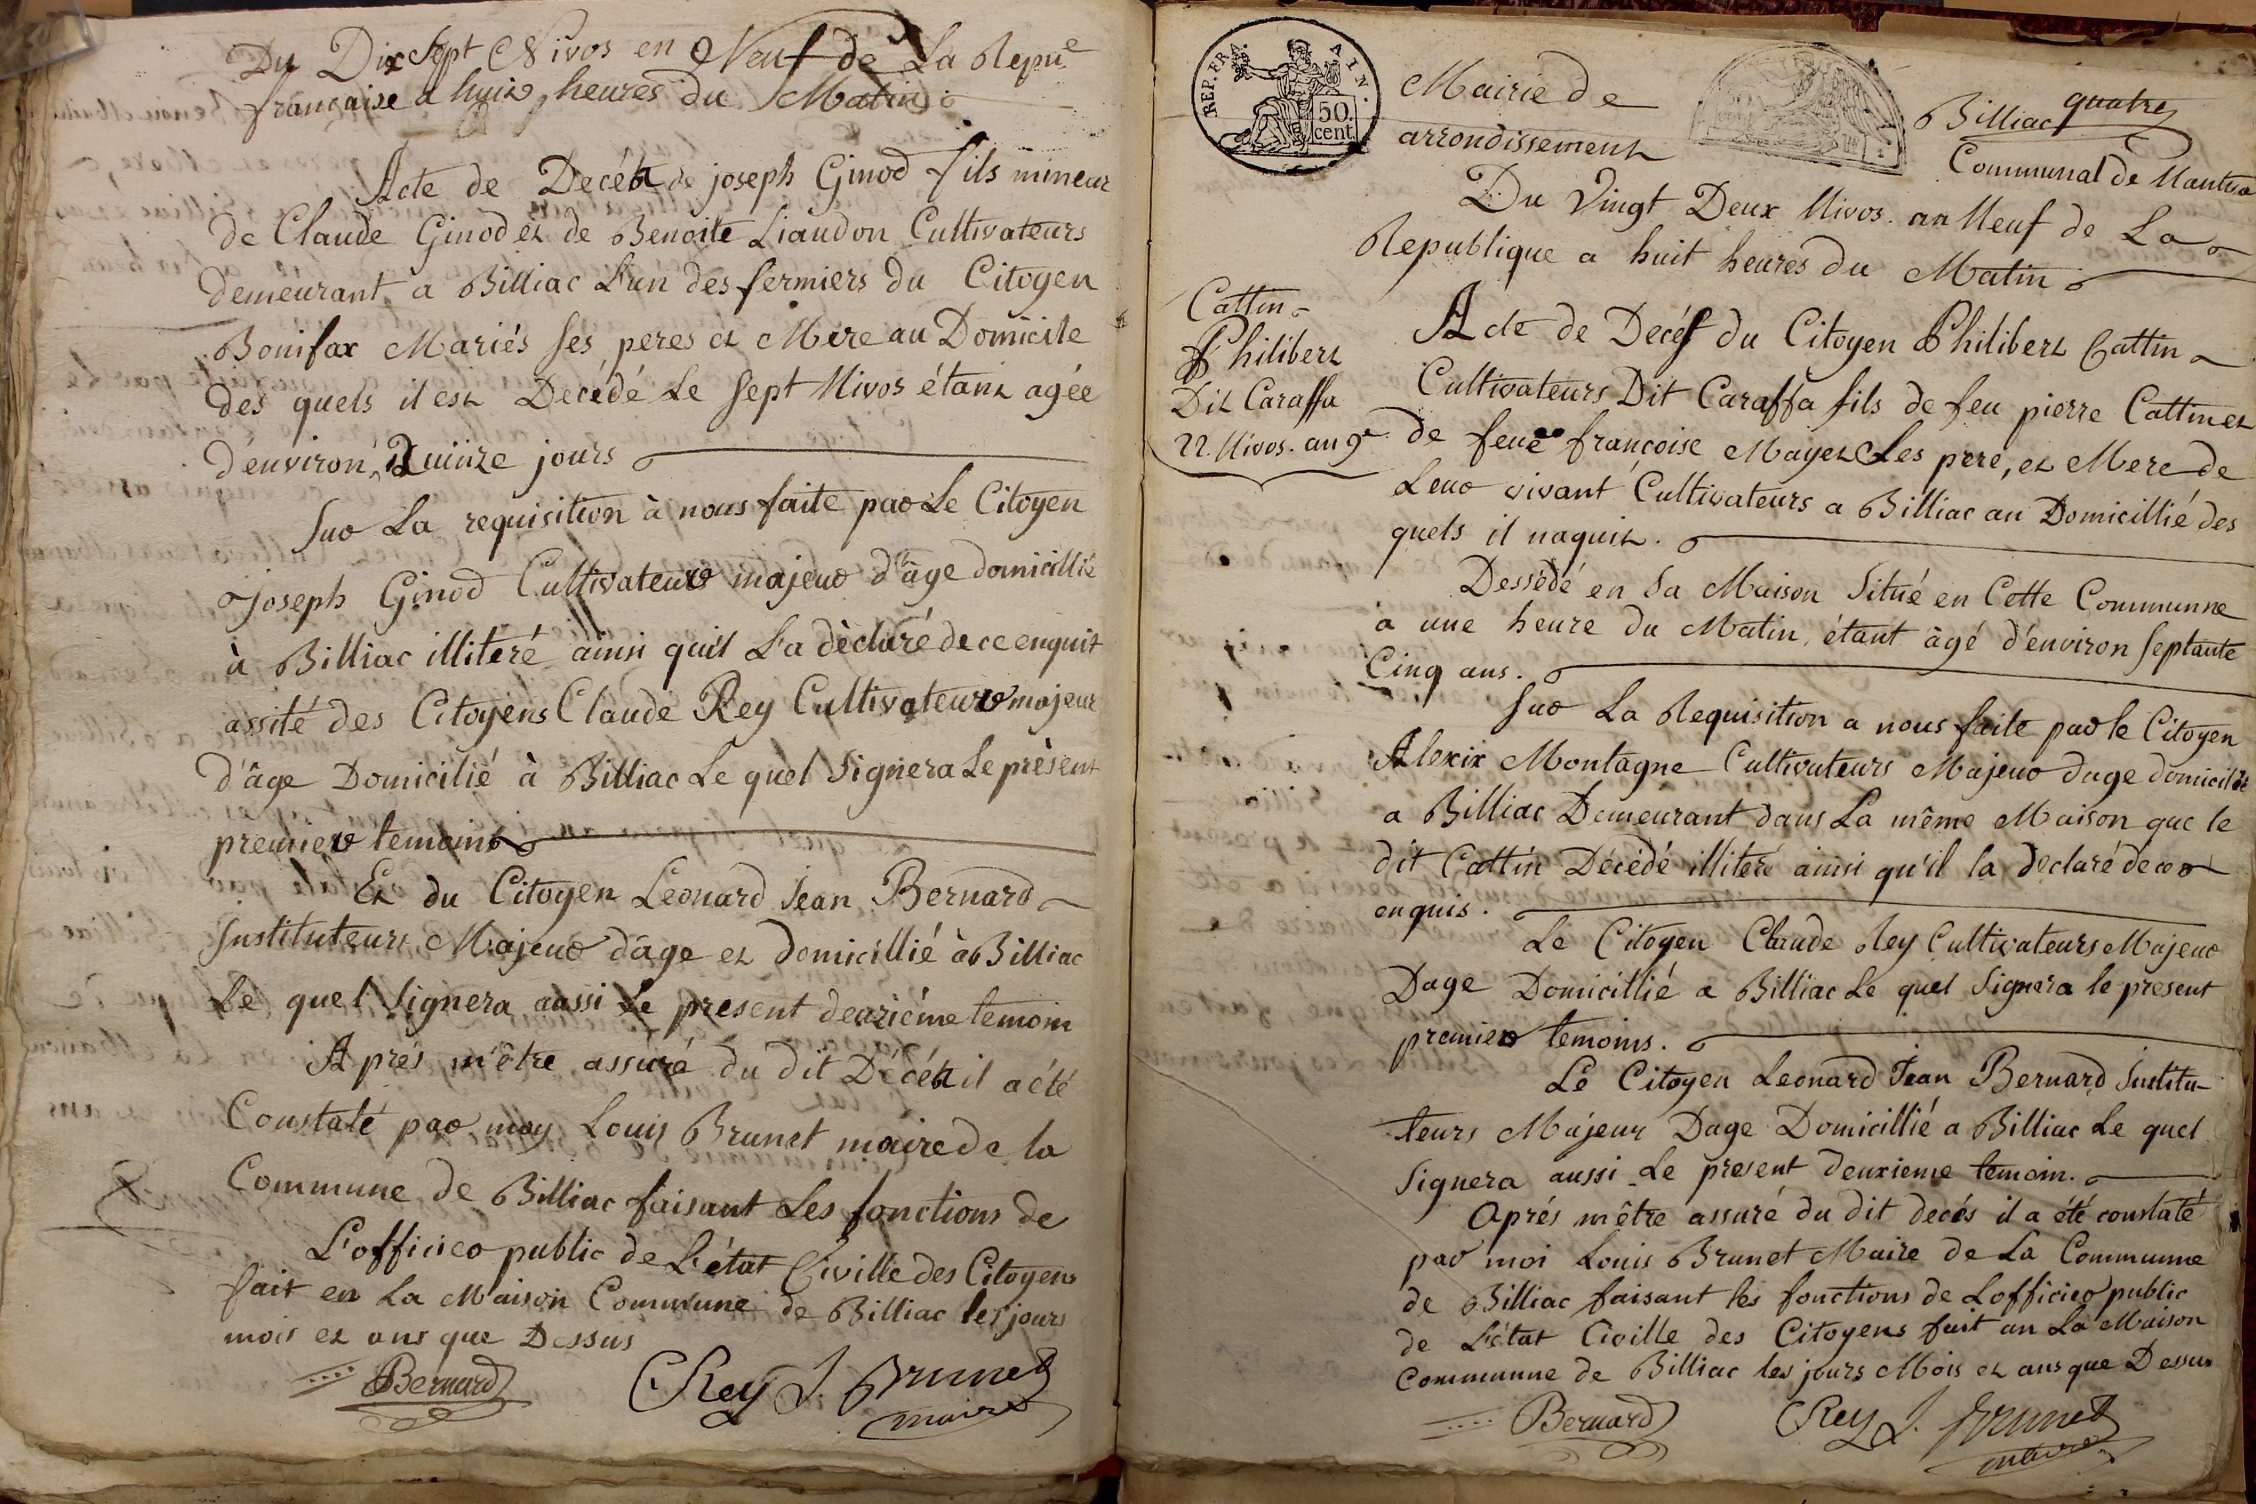 Du Dix Sept Nivos en Neuf de La Repue
française a huit heures du Matin
Acte de Decés de joseph Ginod fils mineur
de Claude Ginod et de Benoite Liaudon Cultivateurs
demeurant a Billiac L'un des fermiers du Citoyen
Bonifax Mariés Ses peres et Mere au Domicile
des quels il est Decédé Le Sept Nivos étant agée
d'environ Quiinze jours
Sur La requisition à nous faite par Le Citoyen
joseph Ginod Cultivateur majeur d'âge domicillié
à Billiac illiteré ainsi qu'il L'a dèclaré de ce enquit
assité des Citoyens Claude Rey Cultivateur majeur
d'âge Domicilié à Billiac Le quel Signera Le prèsent
premier temoins
Et du Citoyen Leonard Jean Bernard
Instituteurs Majeur d'age et domicillié à Billiac
Le quel Signera aussi Le present deuxiéme temoin
Aprés m'être assuré du dit Décés il a été
Constaté par moy Louis Brunet maire de la
Commune de Billiac faisant Les fonctions de
L'officier public de L'état Civille des Citoyens
fait en La Maison Commune de Billiac les jours
mois et ans que Dessus
Bernard
CRey
J. Brunet
maire
REP. FRA.
AIN.
50.
cent.
Mairie de
Billiac
quatre
arrondissement
Communal de Nantua
Du Vingt Deux Nivos. an Neuf de La
Republique a huit heures du Matin
Cattin
Philibert
Dit Caraffa
22. Nivos. an 9e
Acte de Decés du Citoyen Philibert Cattin
Cultivateurs Dit Caraffa fils de feu pierre Cattin et
de feue françoise Mayet Les pere, et Mere de
Leur vivant Cultivateurs a Billiac au Domicillié des
quels il naquit.
Dessédé en Sa Maison Situé en Cette Communne
à une heure du Matin, étant âgé d'environ Septante
Cinq ans.
Sur La Requisition a nous faite par le Citoyen
Alexix Montagne Cultivateurs Majeur dage domicilié
a Billiac Demeurant dans La même Maison que le
dit Cattin Décédé illiteré ainsi qu'il la declaré de ce
enquis.
Le Citoyen Claude Rey Cultivateurs Majeur
Dage Domicillié a Billiac Le quel Signera le present
premier temoins.
Le Citoyen Leonard Jean Bernard Institu-
teurs Majeur Dage Domicillié a Billiac Le quel
Signera aussi Le present deuxieme temoin.
Aprés m'être assuré du dit decés il a été constaté
par moi Louis Brunet Maire de La Communne
de Billiac faisant les fonctions de Lofficier public
de L'état Civille des Citoyens fait an La Maison
Communne de Billiac les jours Mois et ans que Dessus
Bernard
CRey
J. Brunet
maire